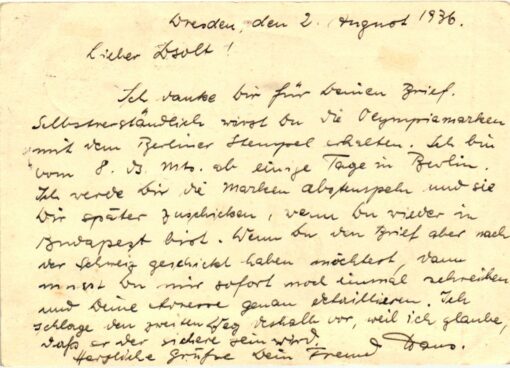 Dresden, den 2. August 1936.
Lieber Zsolt!
Ich danke Dir für Deinen Brief.
Selbstverständlich wirst Du die Olympiamarken
mit dem Berliner Stempel erhalten. Ich bin
vom 8. ds. Mts. ab einige Tage in Berlin.
Ich werde Dir die Marken abstempeln und sie
Dir später zuschicken, wenn Du wieder in
Budapest bist. Wenn Du den Brief aber nach
der Schweiz geschickt haben möchtest, dann
musst Du mir sofort noch einmal schreiben
und Deine Adresse genau detaillieren. Ich
schlage den zweiten Weg deshalb vor, weil ich glaube,
daß er der sichere sein wird.
Herzliche Grüße Dein Freund Hans.